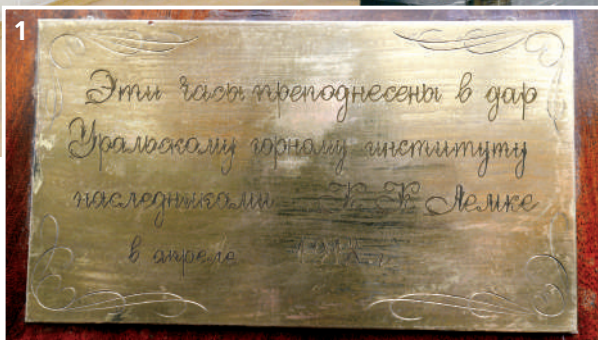 1
Эти часы преподнесены в дар
Уральскому горному институту
наследниками К. К. Лемке
в апреле